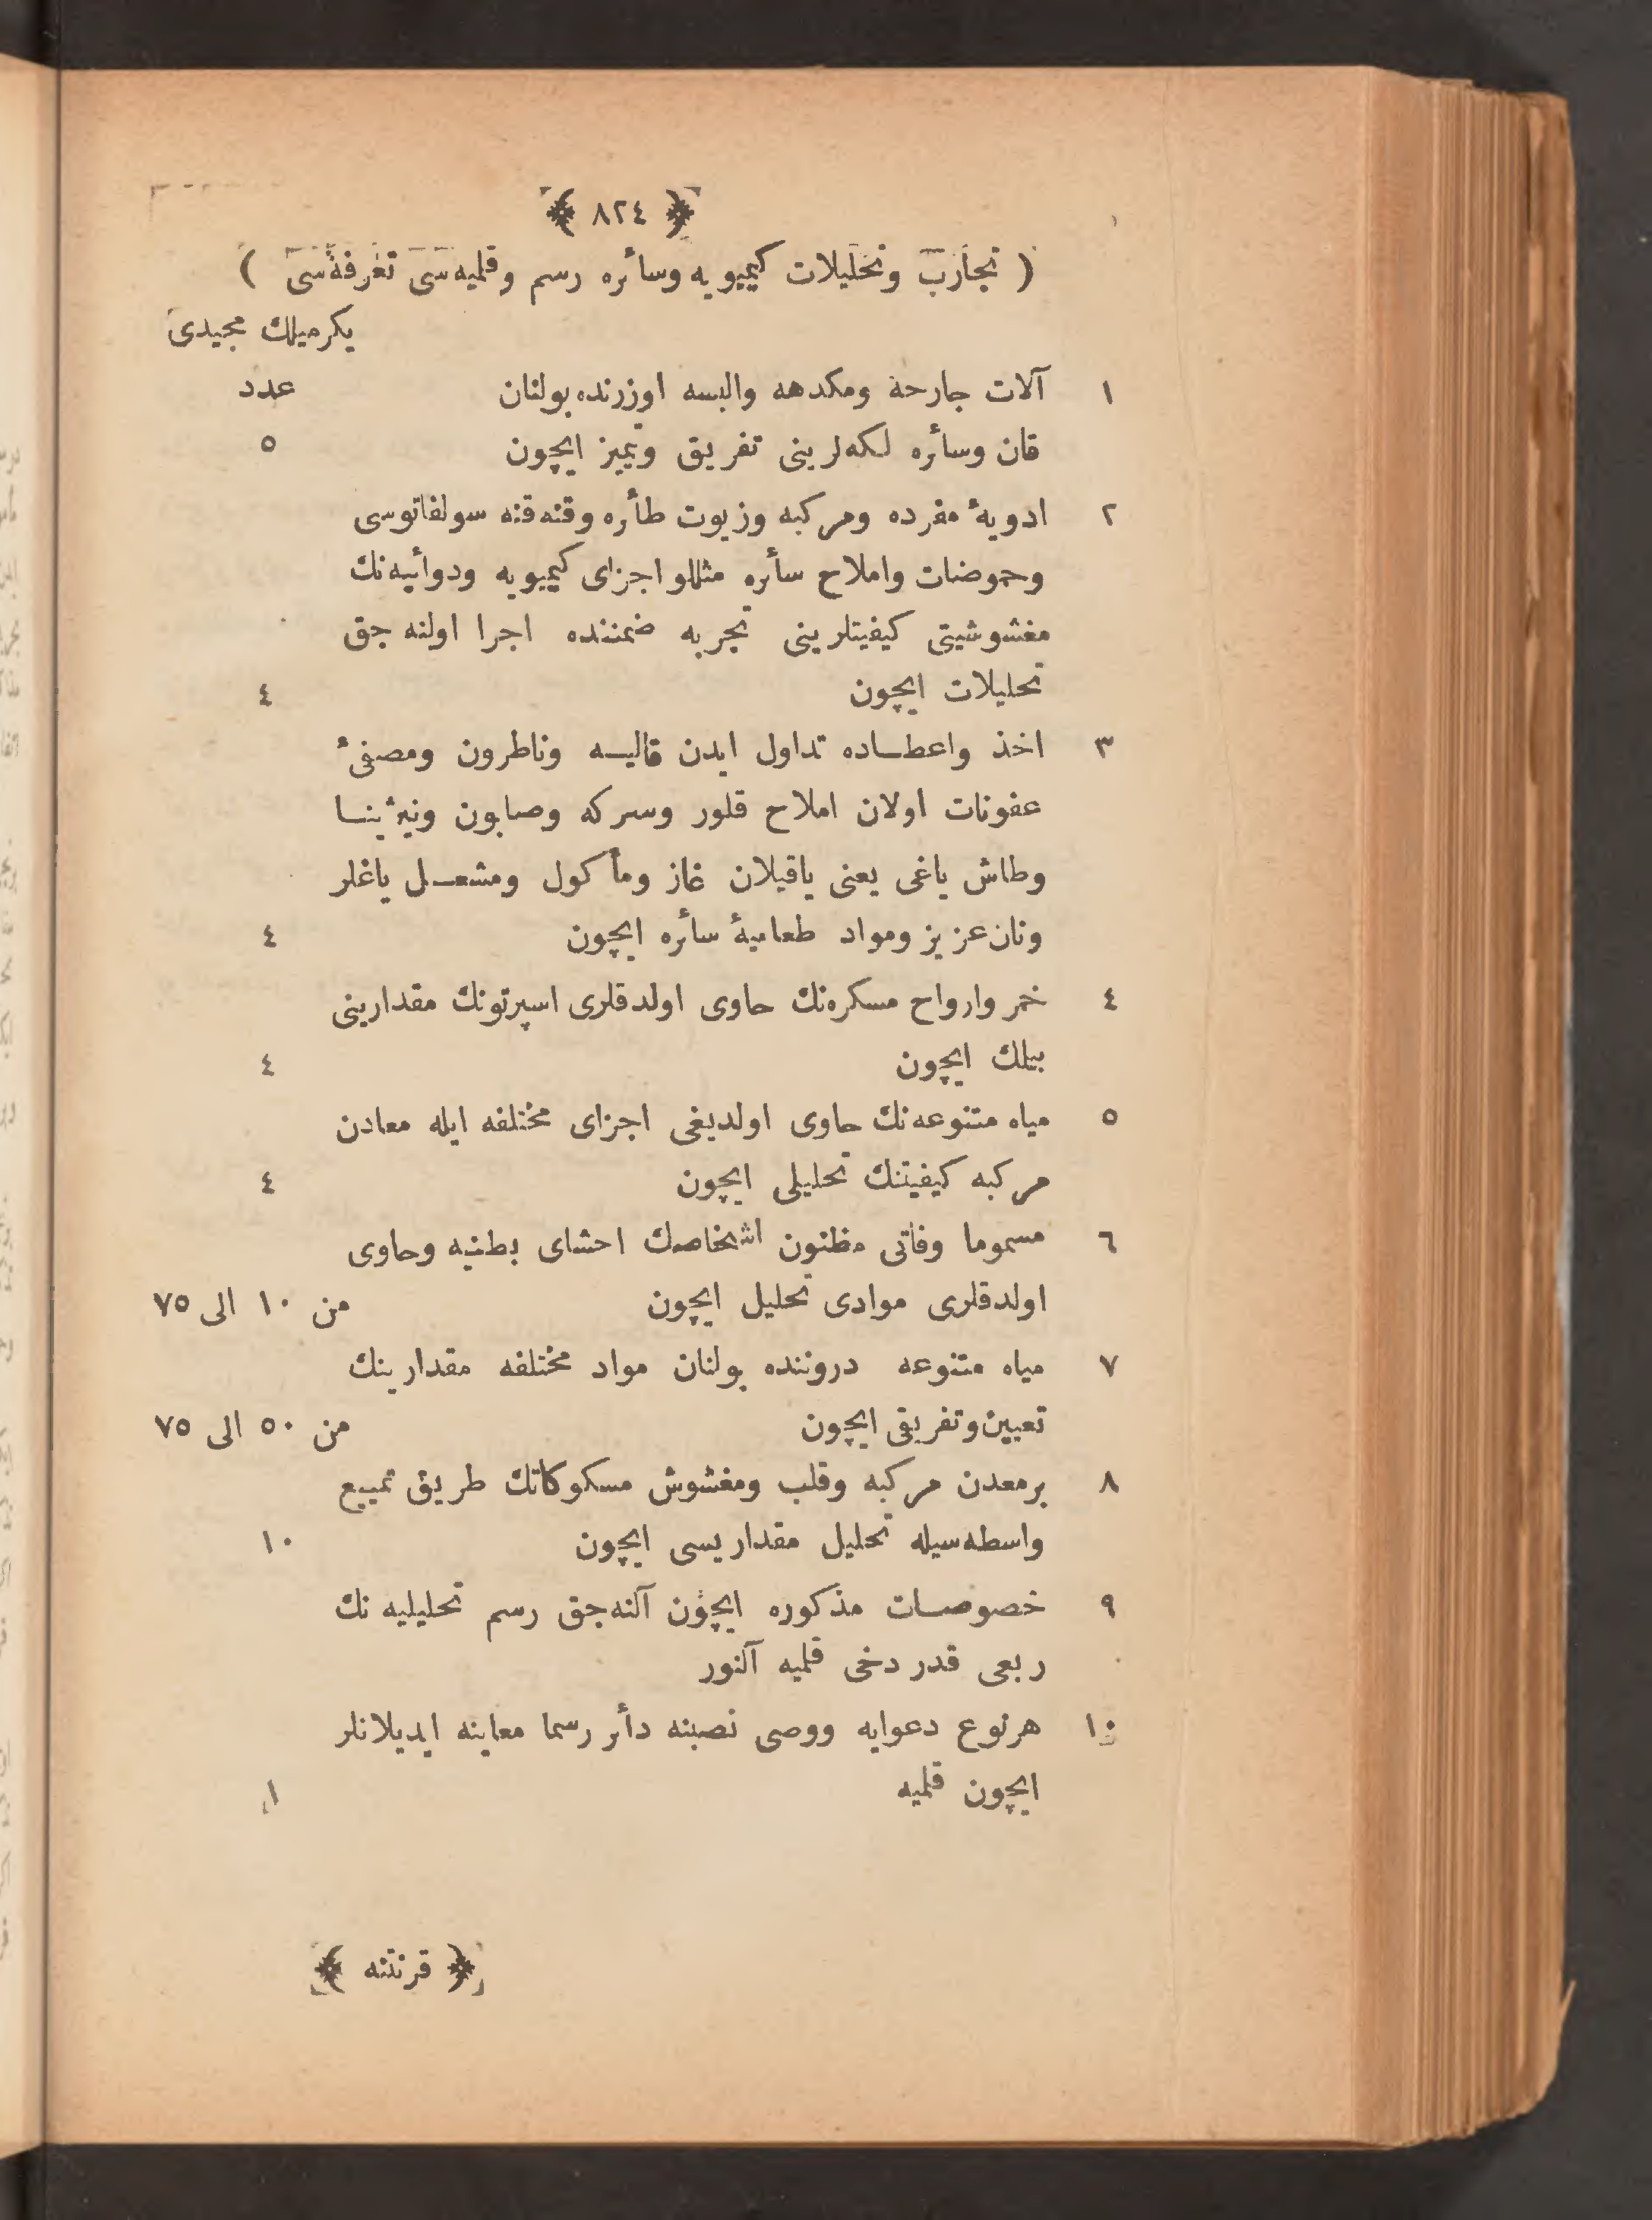 ﴿ ٨٢٤ ﴾
( تجارب وتحليلات كيميويه وسأره رسم وقلميه‌سى تعرفهٔ‌سى )
يكرميلك مجيدى
١ آلات جارحه ومكدهه والبسه اوزرنده بولنان عدد
قان وسأره لكه‌لرينى تفريق وتميز ايچون ٥
٢ ادويهٔ مفرده ومركبه وزيوت طأره وقنه‌قنه سولفاتوسى
وحموضات واملاح سأره مثللو اجزاى كيميويه ودوأيه‌نك
مغشوشيتى كيفيتلرينى تجربه ضمننده اجرا اولنه جق
تحليلات ايچون ٤
٣ اخذ واعطاده تداول ايدن قاليه وناطرون ومصفئ
عفونات اولان املاح قلور وسركه وصابون ونيرٔينا
وطاش ياغى يعنى ياقيلان غاز ومأكول ومشعل ياغلر
ونان عزيز ومواد طعاميهٔ سأره ايچون ٤
٤ خمر وارواح مسكره‌نك حاوى اولدقلرى اسپرتونك مقدارينى
بيلك ايچون ٤
٥ مياه متنوعه‌نك حاوى اولديغى اجزاى مختلفه ايله معادن
مركبه كيفيتنك تحليلى ايچون ٤
٦ مسموما وفاتى مظنون اشخاصك احشاى بطنيه وحاوى
اولدقلرى موادى تحليل ايچون من ١٠ الى ٧٥
٧ مياه متنوعه دروننده بولنان مواد مختلفه مقدارينك
تعيين وتفريقى ايچون من ٥٠ الى ٧٥
٨ برمعدن مركبه وقلب ومغشوش مسكوكاتك طريق تمييع
واسطه‌سيله تحليل مقداريسى ايچون ١٠
٩ خصوصات مذكوره ايچون آلنه‌جق رسم تحليليه نك
ربعى قدر دخى قلميه آلنور
١٠ هرنوع دعوايه ووصى نصبنه دأر رسما معاينه ايديلانلر
ايچون قلميه ١
﴿ قرنتنه ﴾